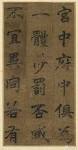 宮中府中俱爲
一體陟罰臧
否不宜異同若有